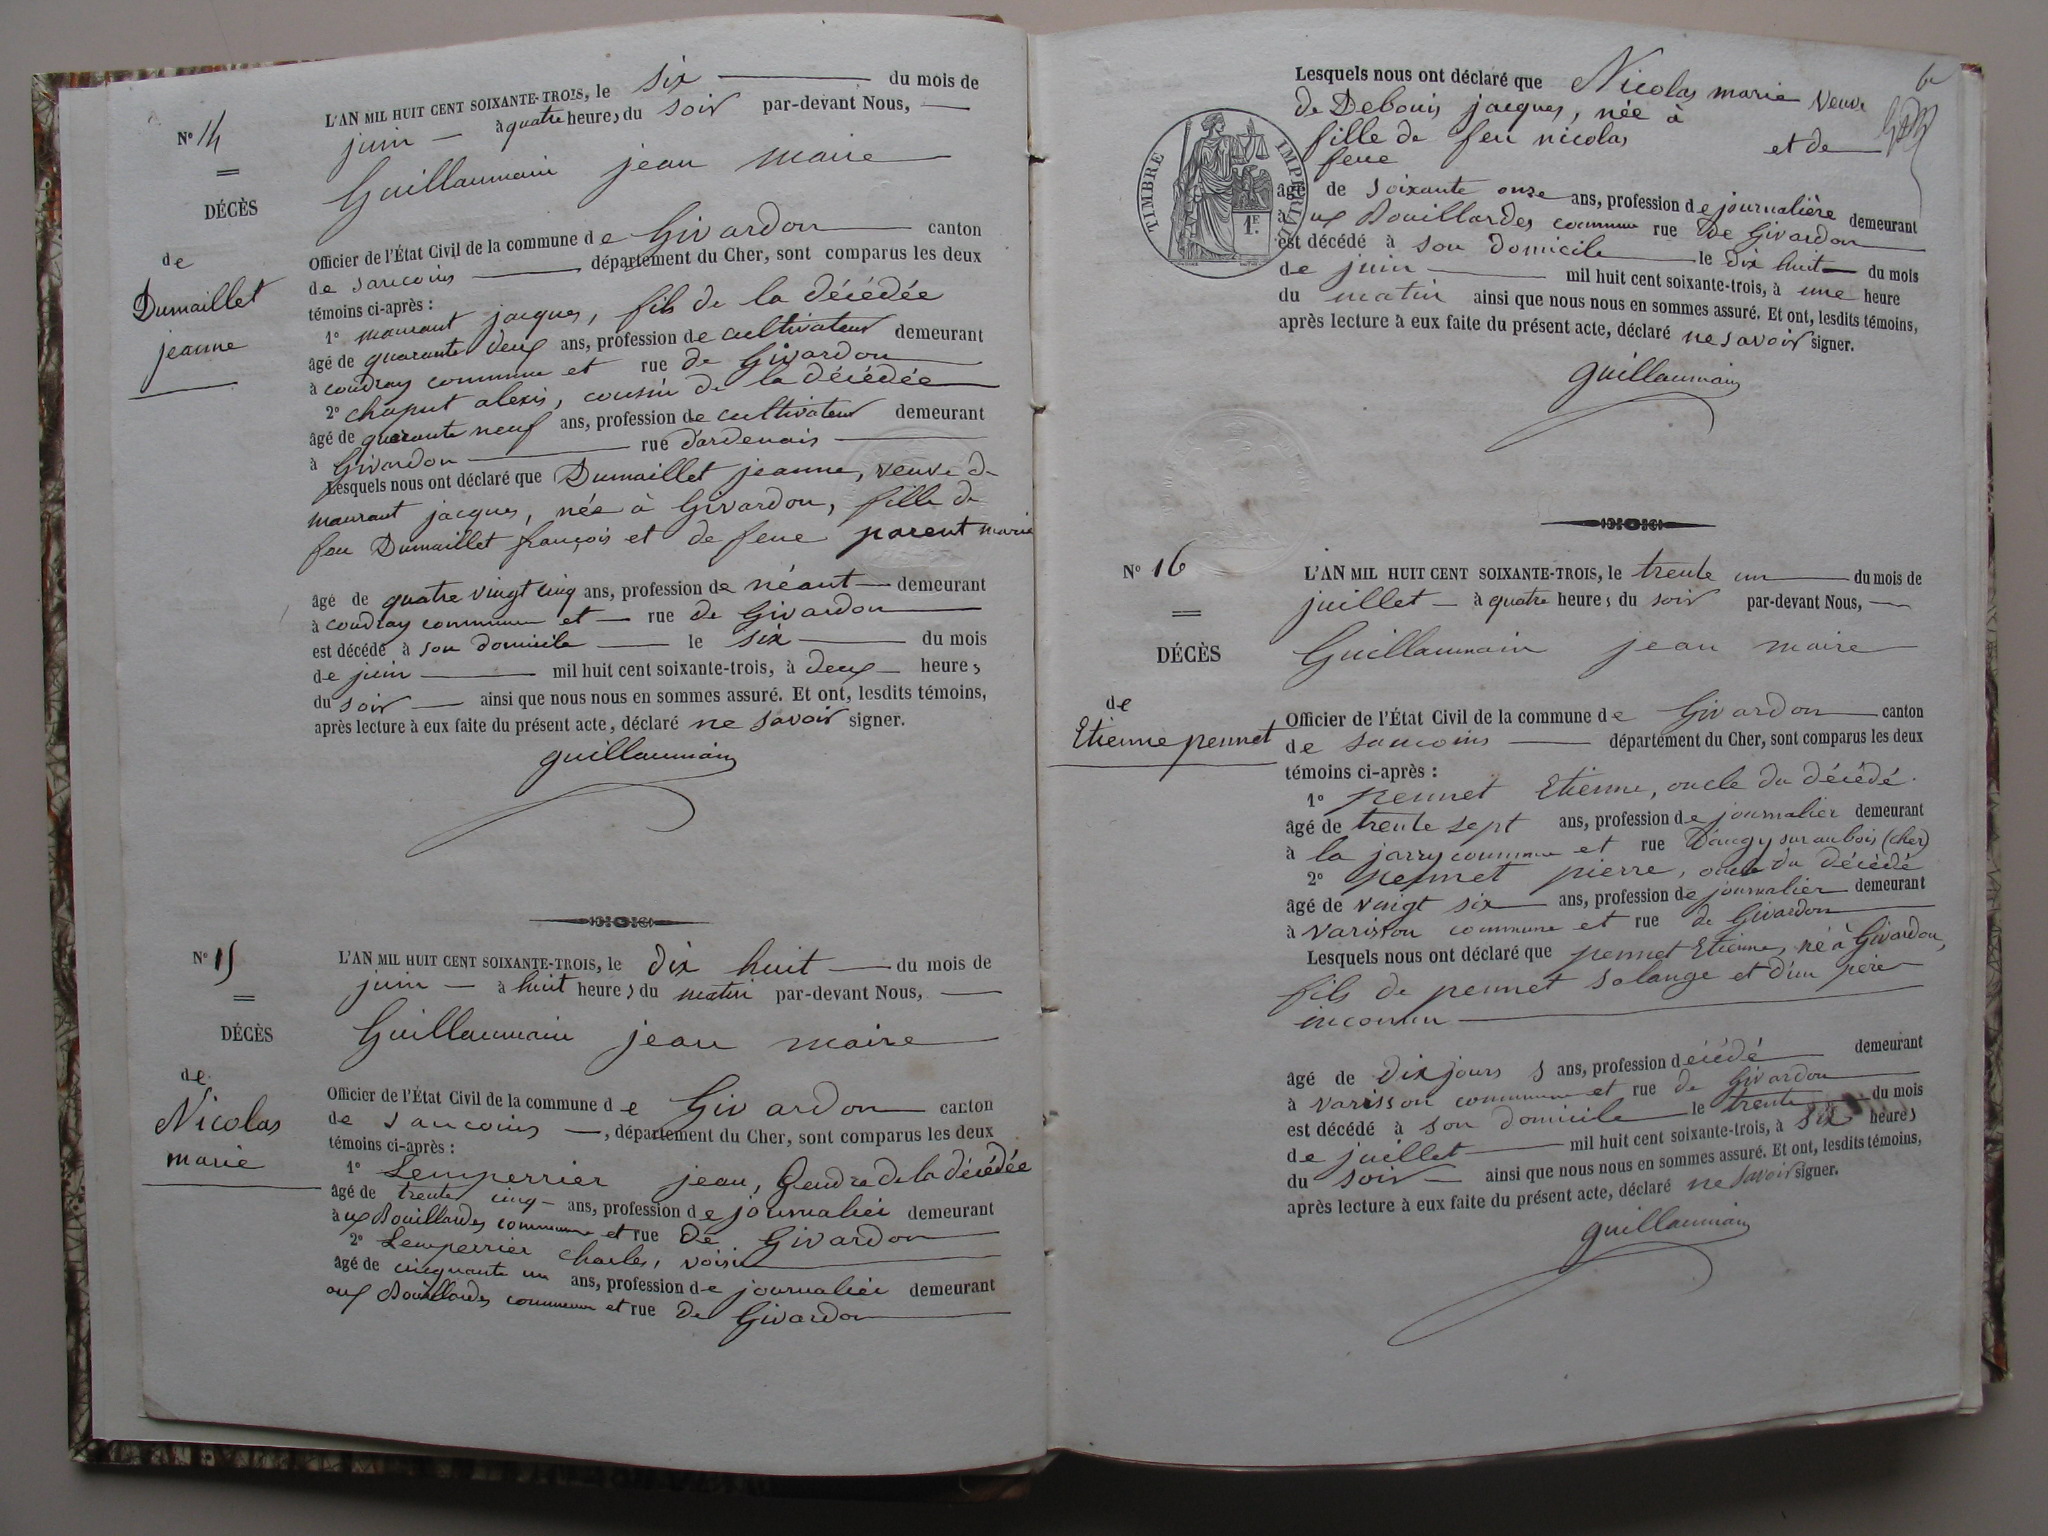 N° 14
DÉCÈS
de
Dumaillet
jeanne
L'AN MIL HUIT CENT SOIXANTE-TROIS, le six du mois de
juin à quatre heures du soir par-devant Nous,
Guillaumain jean maire
Officier de l'État Civil de la commune de Givardon canton
de sancoins département du Cher, sont comparus les deux
témoins ci-après :
1° maurant jacques, fils de la décédée
âgé de quarante deux ans, profession de cultivateur demeurant
à coudray commune et rue de Givardon
2° chaput alexis, cousin de la décédée
âgé de quarante neuf ans, profession de cultivateur demeurant
à Givardon rue d'ardenais
Lesquels nous ont déclaré que Dumaillet jeanne, veuve de
maurant jacques, née à Givardon, fille de
feu Dumaillet françois et de feue parent marie
âgé de quatre vingt cinq ans, profession de néant demeurant
à coudray commune et rue de Givardon
est décédé à son domicile le six du mois
de juin mil huit cent soixante-trois, à deux heures
du soir ainsi que nous nous en sommes assuré. Et ont, lesdits témoins,
après lecture à eux faite du présent acte, déclaré ne savoir signer.
guillaumain
N° 15
DÉCÈS
de
Nicolas
marie
L'AN MIL HUIT CENT SOIXANTE-TROIS, le dix huit du mois de
juin à huit heures du matin par-devant Nous,
Guillaumain jean maire
Officier de l'État Civil de la commune de Givardon canton
de sancoins, département du Cher, sont comparus les deux
témoins ci-après :
1° Lemperrier jean, Gendre de la décédée
âgé de trente cinq ans, profession de journalier demeurant
aux Bouillardes commune et rue de Givardon
2° Lemperrier charles, voisin
âgé de cinquante un ans, profession de journalier demeurant
aux Bouillardes commune et rue de Givardon
6
Lesquels nous ont déclaré que Nicolas marie veuve
de Debouis jacques, née à
fille de feu nicolas et de
feue
âgé de soixante onze ans, profession de journalière demeurant
aux Bouillardes commune rue de Givardon
est décédé à son domicile le dix huit du mois
de juin mil huit cent soixante-trois, à une heure
du matin ainsi que nous nous en sommes assuré. Et ont, lesdits témoins,
après lecture à eux faite du présent acte, déclaré ne savoir signer.
guillaumain
TIMBRE IMPERIAL
1 F.
N° 16
DÉCÈS
de
Etienne pennet
L'AN MIL HUIT CENT SOIXANTE-TROIS, le trente un du mois de
juillet à quatre heures du soir par-devant Nous,
Guillaumain jean maire
Officier de l'État Civil de la commune de Givardon canton
de sancoins département du Cher, sont comparus les deux
témoins ci-après :
1° pennet Etienne, oncle du décédé
âgé de trente sept ans, profession de journalier demeurant
à la jarry commune et rue D'augy sur aubois (cher)
2° pennet pierre, oncle du décédé
âgé de vingt six ans, profession de journalier demeurant
à varisson commune et rue de Givardon
Lesquels nous ont déclaré que pennet Etienne, né à Givardon,
fils de pennet solange et d'un père
inconnu
âgé de dix jours ans, profession décédé demeurant
à varisson commune et rue de Givardon
est décédé à son domicile le trente du mois
de juillet mil huit cent soixante-trois, à six heures
du soir ainsi que nous nous en sommes assuré. Et ont, lesdits témoins,
après lecture à eux faite du présent acte, déclaré ne savoir signer.
guillaumain